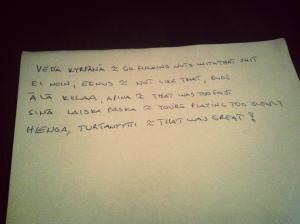 VEDÄ KYRPÄNÄ ≈ GO FUCKING NUTS WITH THAT SHIT
EI NOIN, EENUS ≈ NOT LIKE THAT, DUDE
ÄLÄ KELAA, APINA ≈ THAT WAS TOO FAST
SINÄ LAISKA PASKA ≈ YOU'RE PLAYING TOO SLOWLY
HIENOA, TURTANYTTI ≈ THAT WAS GREAT!